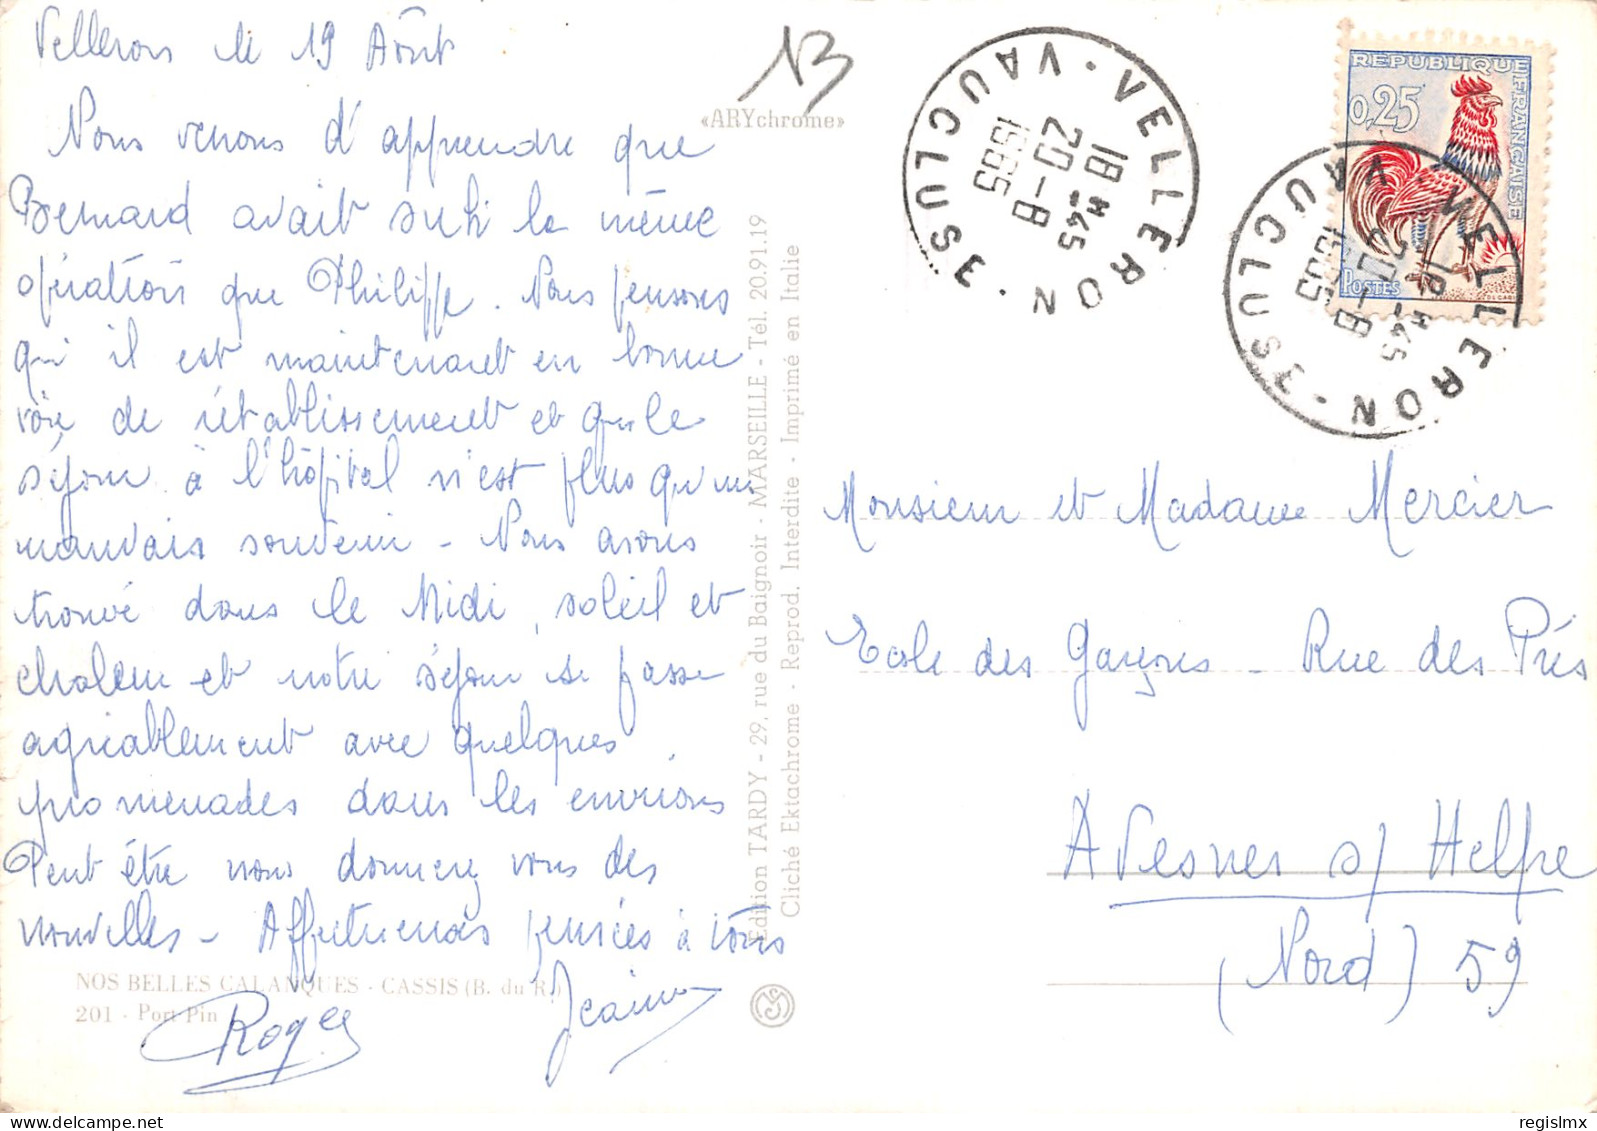 Velleron le 19 Août
Nous venons d'apprendre que
Bernard avait subi la même
opération que Philippe. Nous pensons
qu'il est maintenant en bonne
voie de rétablissement et que le
séjour à l'hôpital n'est plus qu'un
mauvais souvenir - Nous avons
trouvé dans le Midi, soleil et
chaleur et notre séjour se passe
agréablement avec quelques
promenades dans les environs
Peut être nous donnerez vous des
nouvelles - Affectueuses pensées à tous
Roger Jeanine
NOS BELLES CALANQUES - CASSIS (B. du R.)
201 - Port Pin
«ARYchrome»
Edition TARDY - 29, rue du Baignoir - MARSEILLE - Tél. 20.91.19
Cliché Ektachrome - Reprod. Interdite - Imprimé en Italie
VELLERON · VAUCLUSE
18 H 45
20 - 8
1965
REPUBLIQUE FRANÇAISE
0,25
POSTES
VELLERON · VAUCLUSE
18 H 45
20 - 8
1965
Monsieur et Madame Mercier
Ecole des Garçons - Rue des Prés
Avesnes s/ Helpe
(Nord) 59
regislmx